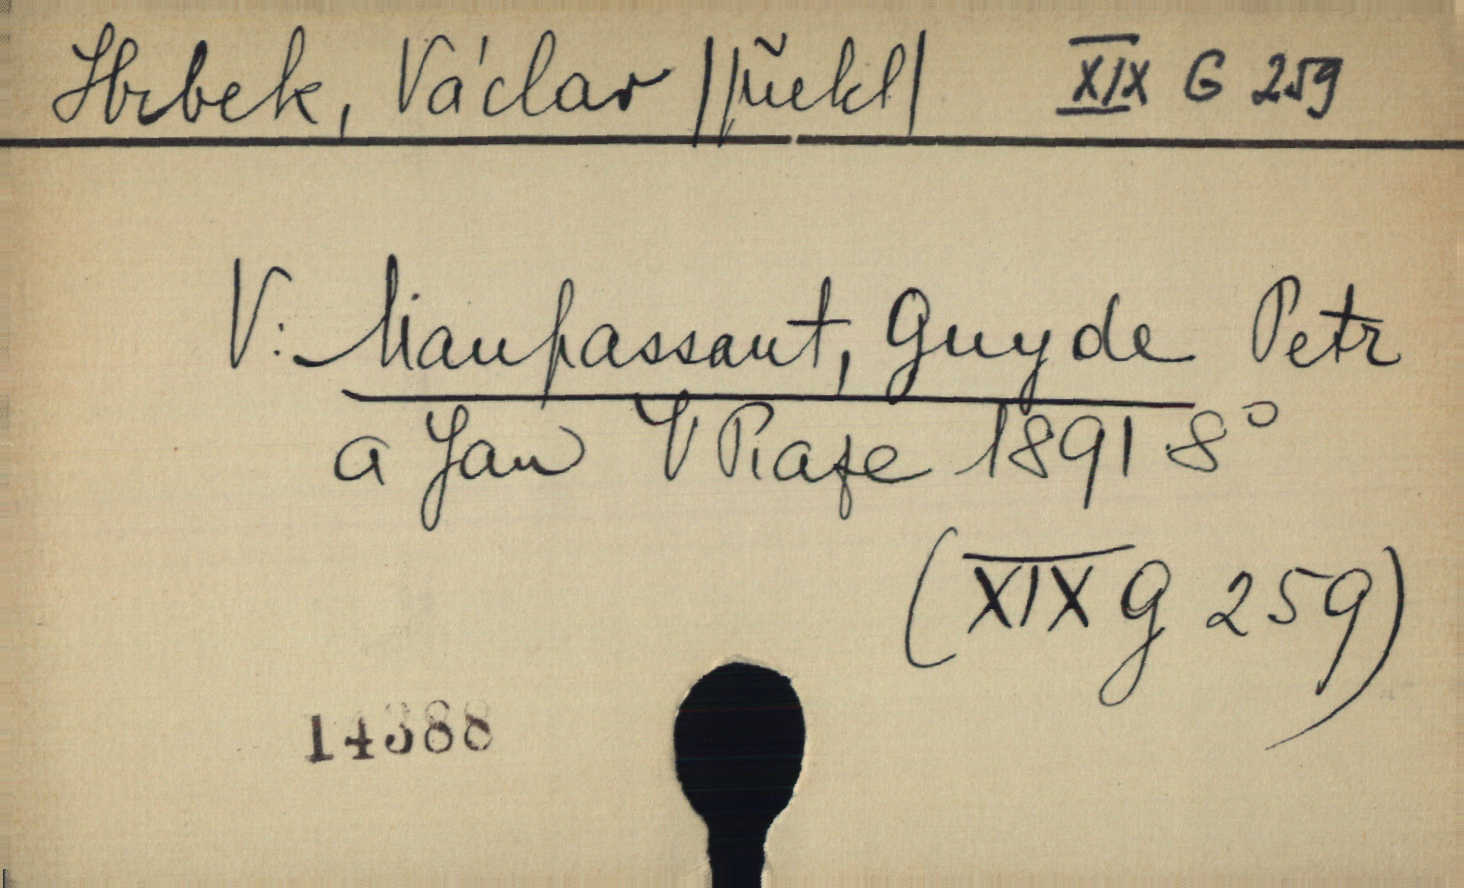 Hrbek, Václav |překl| XIX G 259
V: Maupassant, Guy de Petr
a Jan V Praze 1891 8°
(XIX G 259)
14388